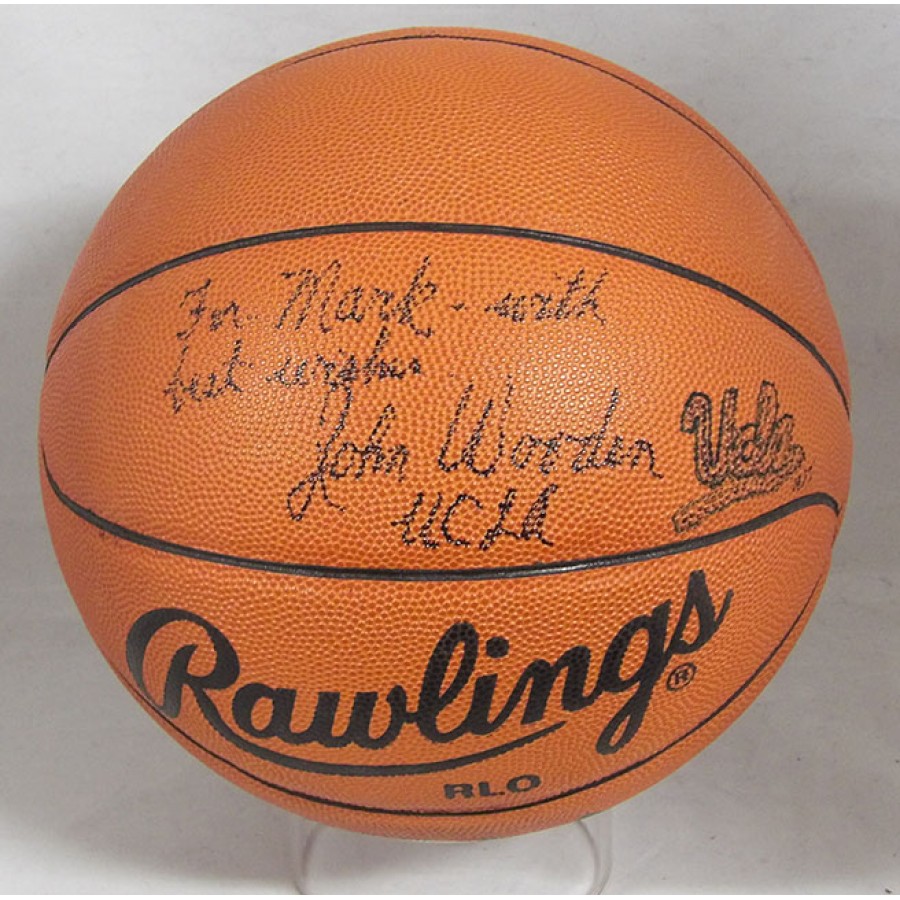 For Mark - with
best wishes
John Wooden
UCLA
Ucla
Rawlings®
RLO